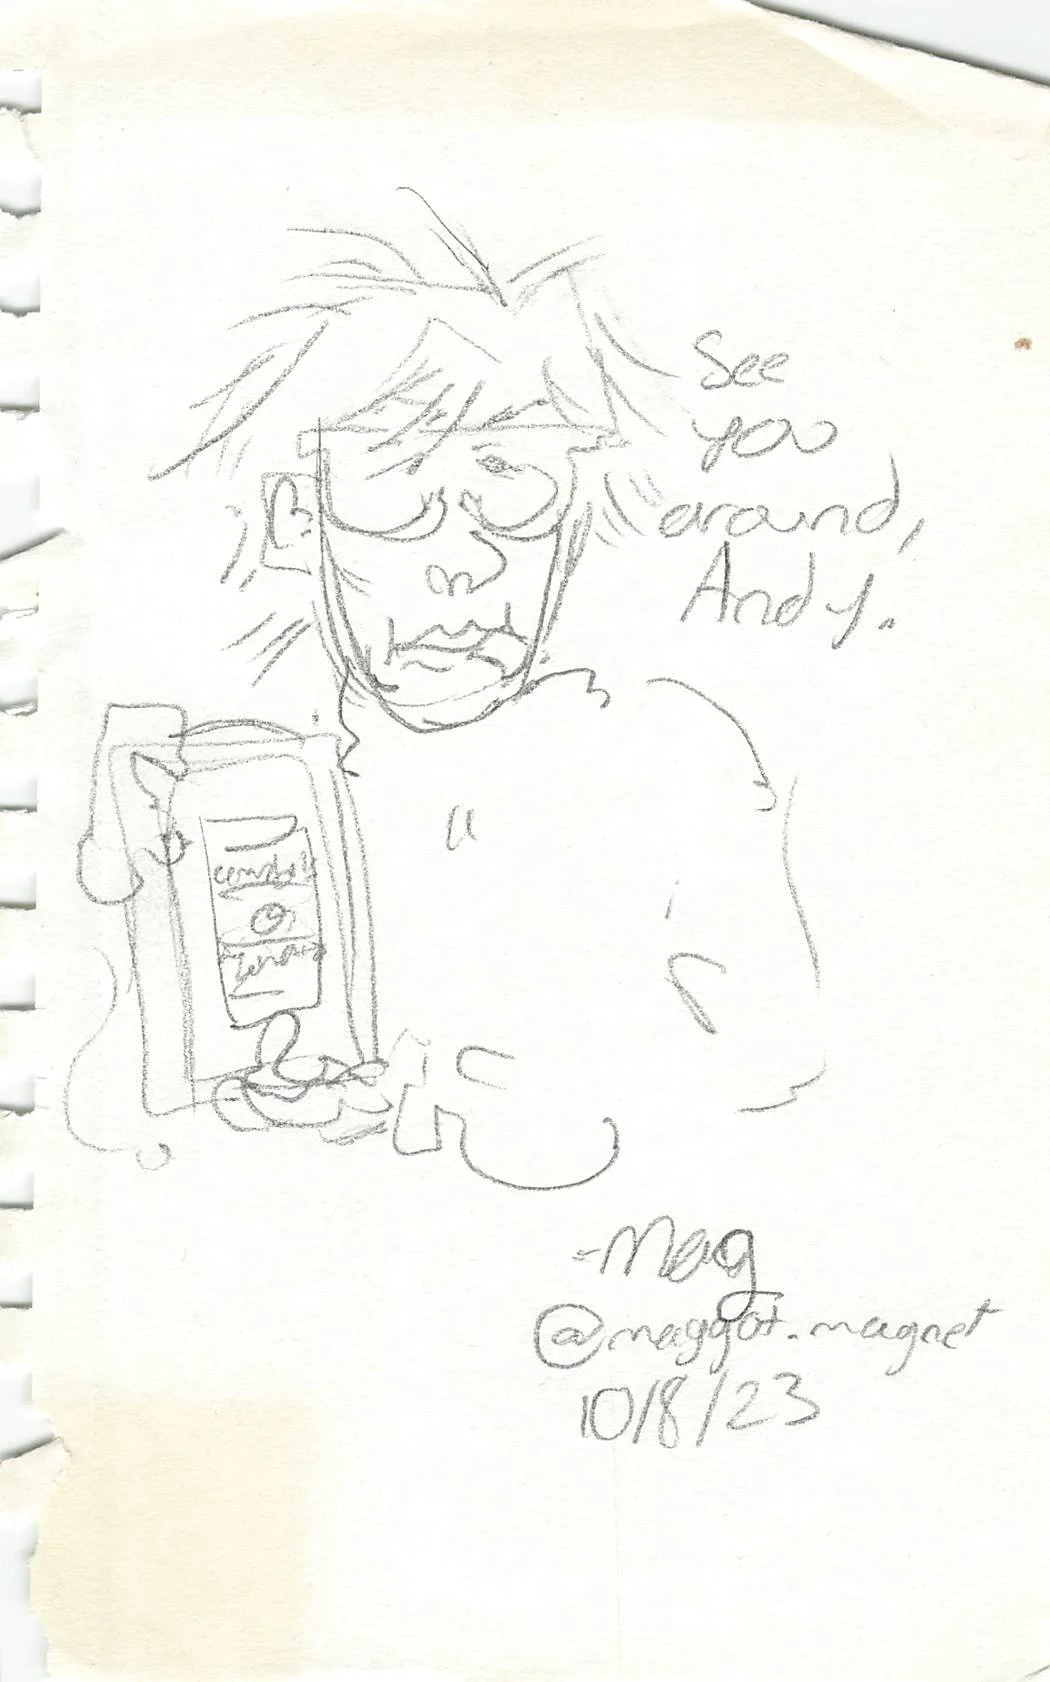 See
you
around,
Andy.
-Mag
@maggot.magnet
10/8/23